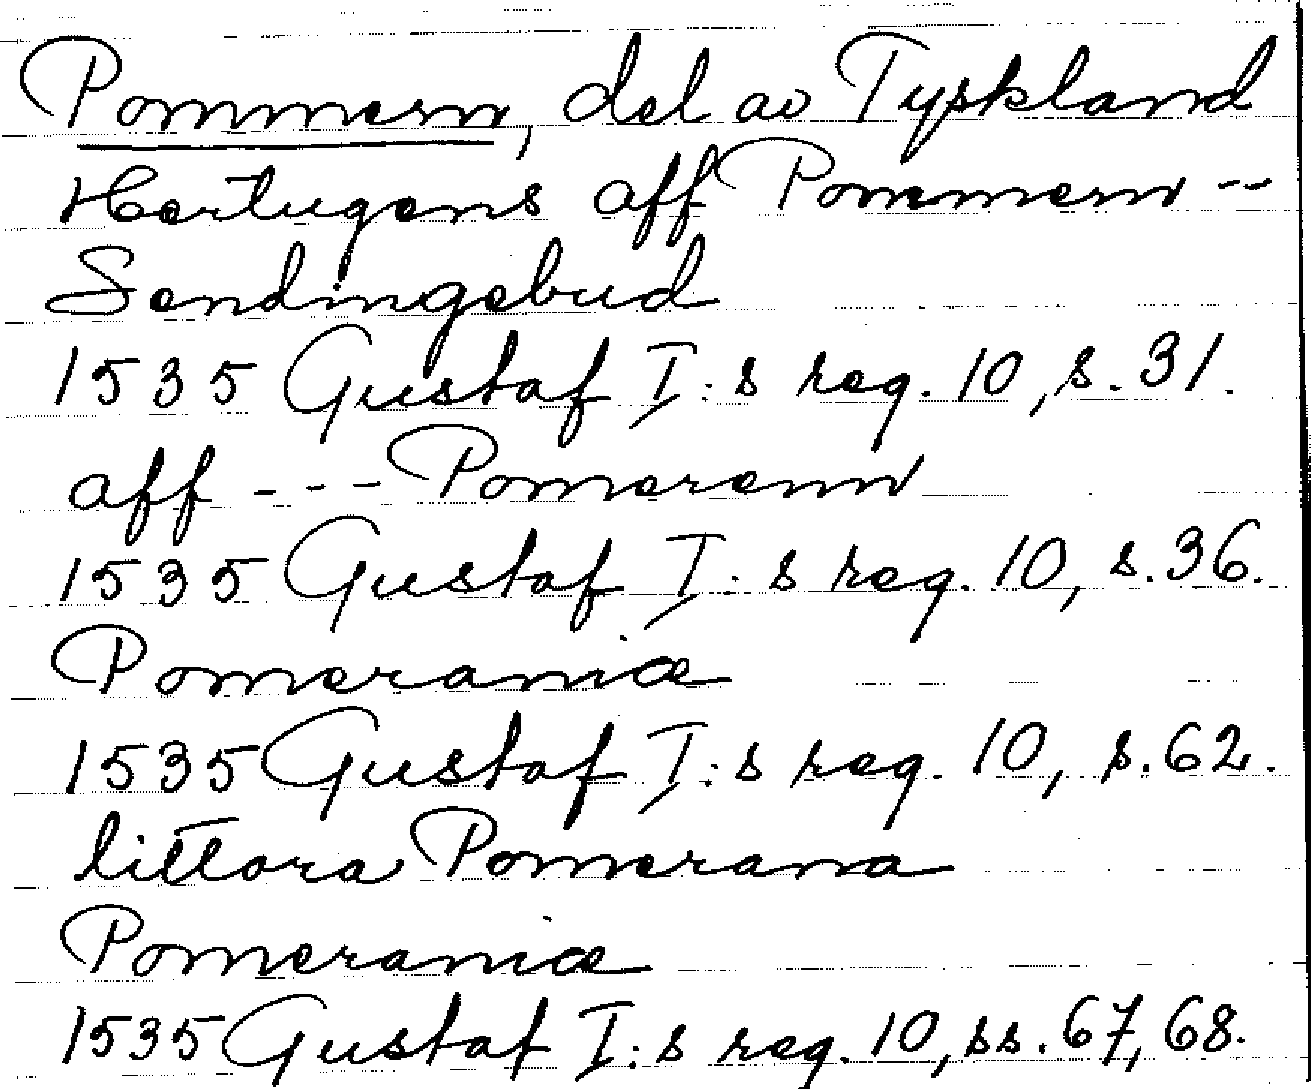 Pommern, del av Tyskland
Hertugens aff Pommern --
Sendingebud
1535 Gustaf I:s reg. 10, s. 31.
aff --- Pomerenn
1535 Gustaf I:s reg. 10, s. 36.
Pomeraniæ
1535 Gustaf I:s reg. 10, s. 62.
littora Pomerana
Pomeraniæ
1535 Gustaf I:s reg. 10, ss. 67, 68.